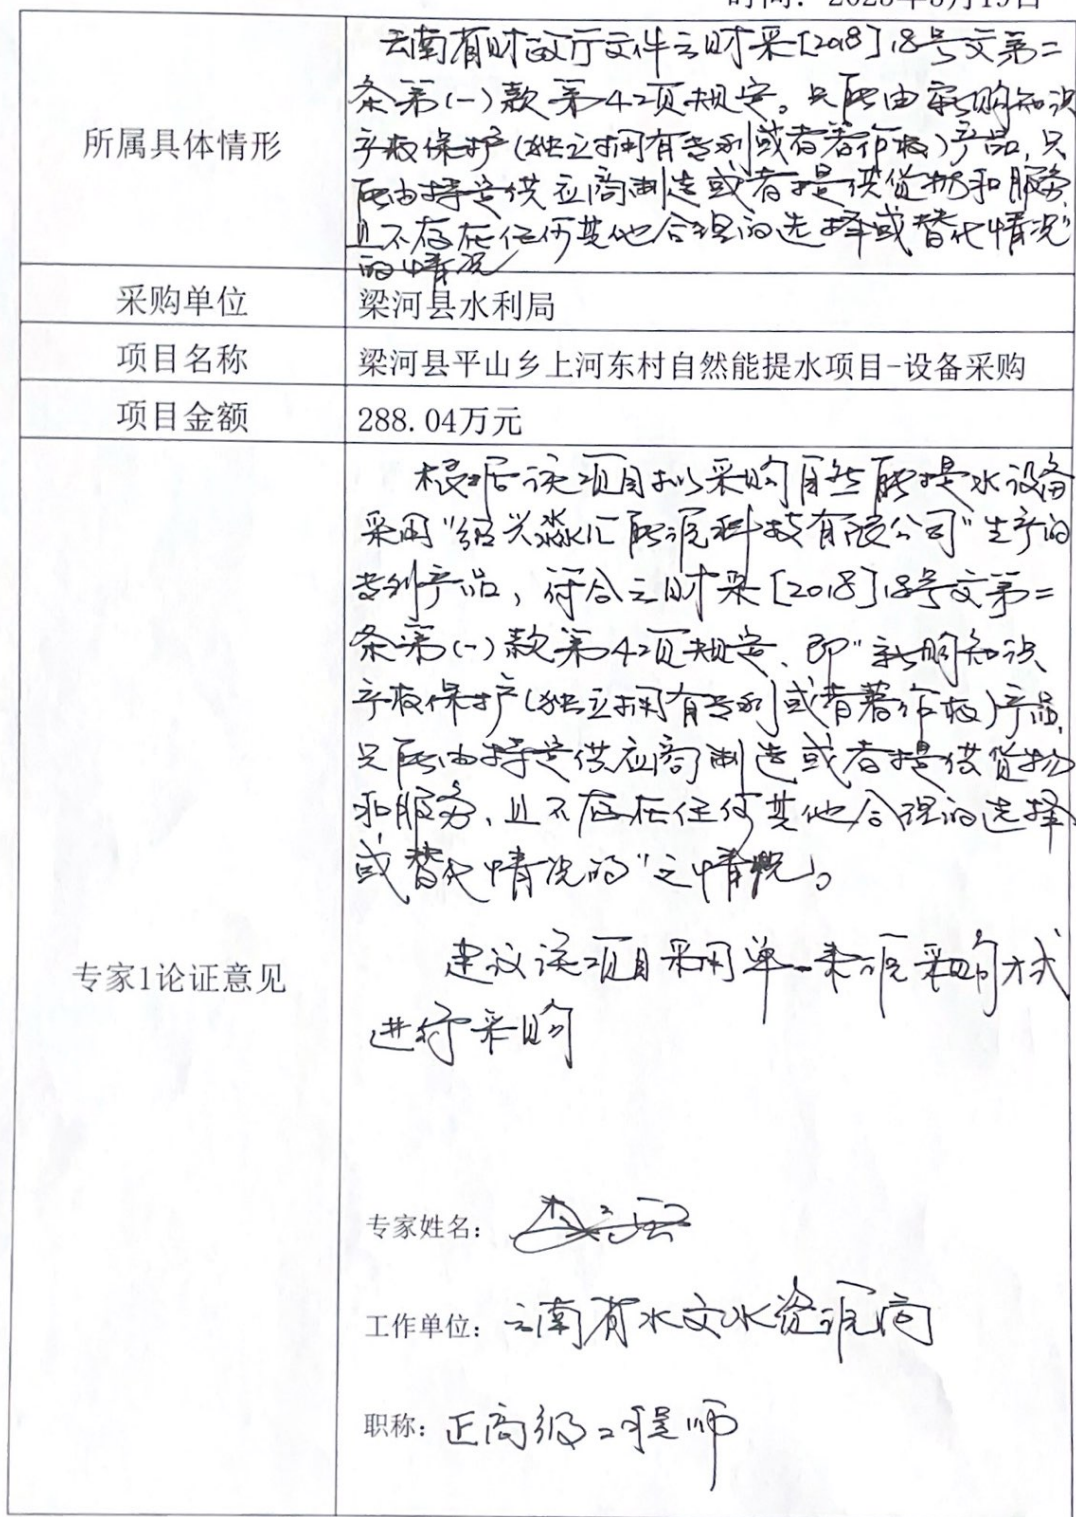 时间：2023年3月19日
所属具体情形
云南省财政厅文件云财采[2018]18号文第二
条第(一)款第4.2项规定。只能由 知识
产权保护(独立拥有专利或者著作权)产品，只
能由特定供应商制造或者提供货物和服务，
且不存在任何其他合理的选择或替代情况"
的情况
采购单位
梁河县水利局
项目名称
梁河县平山乡上河东村自然能提水项目-设备采购
项目金额
288.04万元
专家1论证意见
根据该项目拟采购自然能提水设备
采用"绍兴淼汇能源科技有限公司"生产的
专利产品，符合云财采[2018]18号文第二
条第(一)款第4.2项规定、即" 知识
产权保护(独立拥有专利或者著作权)产品，
只能由特定供应商制造或者提供货物
和服务、且不存在任何其他合理的选择
或替代情况的"之情况。
建议该项目采用单一来源采购方式
进行采购
专家姓名：
工作单位：云南省水文水资源局
职称：正高级工程师